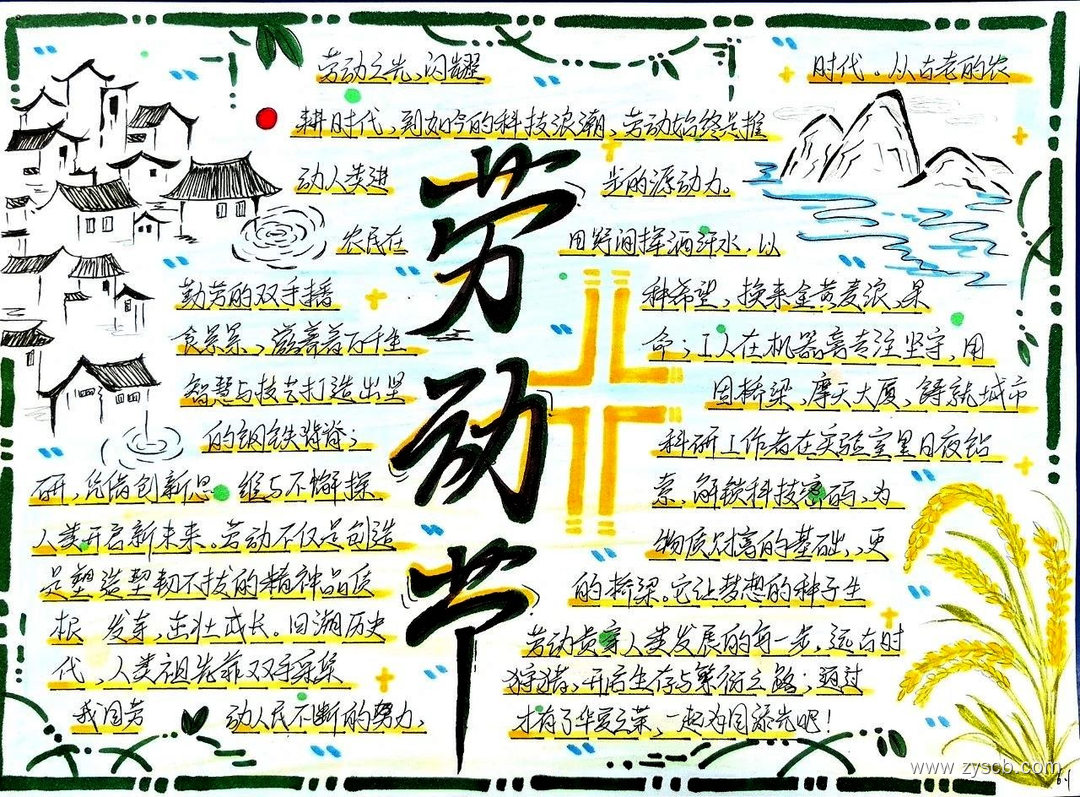 劳动节
劳动之光,闪耀 时代。从古老的农
耕时代,到如今的科技浪潮,劳动始终是推
动人类进 步的源动力。
农民在 田野间挥洒汗水,以
勤劳的双手播 种希望,换来金黄麦浪、果
食累累,滋养着万千生 命;工人在机器旁专注坚守,用
智慧与技艺打造出坚 固桥梁、摩天大厦,铸就城市
的钢铁脊梁; 科研工作者在实验室里日夜钻
研,凭借创新思 维与不懈探 索,解锁科技密码,为
人类开启新未来。劳动不仅是创造 物质财富的基础,更
是塑造坚韧不拔的精神品质 的桥梁。它让梦想的种子生
根 发芽,茁壮成长。回溯历史 劳动贯穿人类发展的每一步,远古时
代,人类祖先靠双手采集 狩猎、开启生存与繁衍之路;通过
我国劳 动人民不断的努力, 才有了华夏之荣,一起为国添光吧!
www.zyscb.com